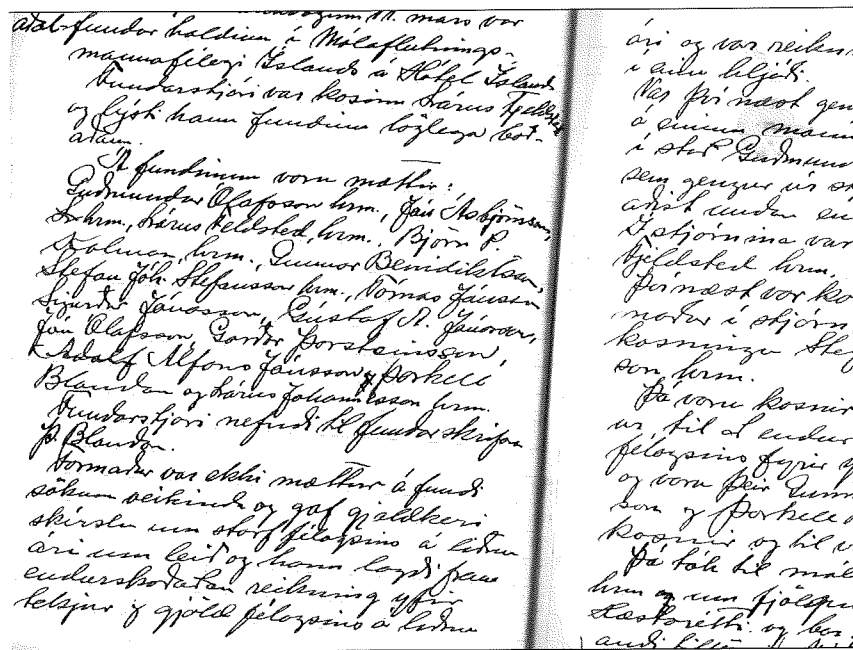 11. mars var
aðalfundur haldinn í Málaflutnings-
mannafélagi Íslands á Hótel Ísland
Fundarstjóri var kosinn Lárus Fjeldsted
og lýsti hann fundinn löglega boð-
aðan.
Á fundinum voru mættir:
Guðmundur Ólafsson hrm., Jón Ásbjörnsson,
hrm., Lárus Feldsted, hrm., Björn P.
Kalman, hrm., Gunnar Benidiktsson,
Stefan Jóh. Stefansson hrm., Tómas Jónsson
Sigurður Jónasson, Gústaf A. Jónasson,
Jón Ólafsson, Garðar Þorsteinsson,
Adolf Alfons Jónsson, Þorkell
Blandon og Lárus Johannesson hrm.
Fundarstjóri nefndi til fundarskrifara
Þ. Blandon.
Formaður var ekki mættur á fundi
sökum veikinda og gaf gjaldkeri
skírslu um störf félagsins á liðnu
ári um leið og hann lagði fram
endurskoðaðan reikning yfir
tekjur og gjöld félagsins á liðnu
ári og var reikn
í einu hljóði.
Var því næst gen
á einum mann
í stað Guðmund
sem gengur úr s
aðist undan en
Í stjórnina var
Fjeldsted hrm.
Þvínæst var ko
maður í stjórn
kosningu Stef
son, hrm.
Þá voru kosnir
ur, til að endur
félagsins fyrir y
og voru þeir Gunn
son og Þorkell
kosnir og til v
Þá tók til mál
hrm og um fjölgun
Hæstarétti og bar
andi